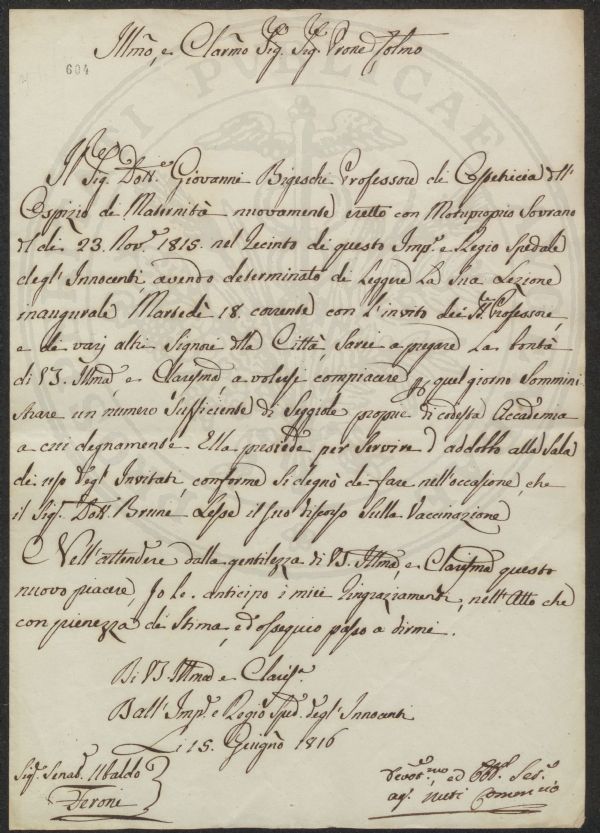 Illmo, e Clarmo Sig. Sig. Prone Colmo
604
Il Sig. Dott.e Giovanni Bigeschi Professore di Ostetricia dell'
Ospizio di Maternità nuovamente eretto con Motuproprio Sovrano
del dì 23. Nov.e 1815. nel Recinto di questo Imp.e e Regio Spedale
degl'Innocenti, avendo determinato di Leggere La Sua Lezione
inaugurale Martedì 18. corrente con L'invito dei SS.ri Professori,
e di varj altri Signori della Città, Sarei a pregare La bontà
di VS. Illma, e Clarisma a volersi compiacere per quel giorno Sommini
strare un numero Sufficiente di Seggiole proprie di codesta Accademia
a cui degnamente Ella presiede per Servire d'addobbo alla Sala
ad uso degl'Invitati, conforme Si degnò di fare nell'occasione, che
il Sig.e Dott. Bruni Lesse il suo discorso Sulla Vaccinazione
Nell'attendere dalla gentilezza di VS. Illma, e Clarisma questo
nuovo piacere, Io le anticipo i miei Ringraziamenti, nell'Atto che
con pienezza di Stima, ed ossequio passo a dirmi.
Di VS. Illma e Claris.a
Dall'Imp.e e Regio Sped.e degl'Innocenti
Li 15. Giugno 1816
Sig.e Senat. Ubaldo
Feroni
Devot.mo ed Obb. Ser.e
Nuti Commessario